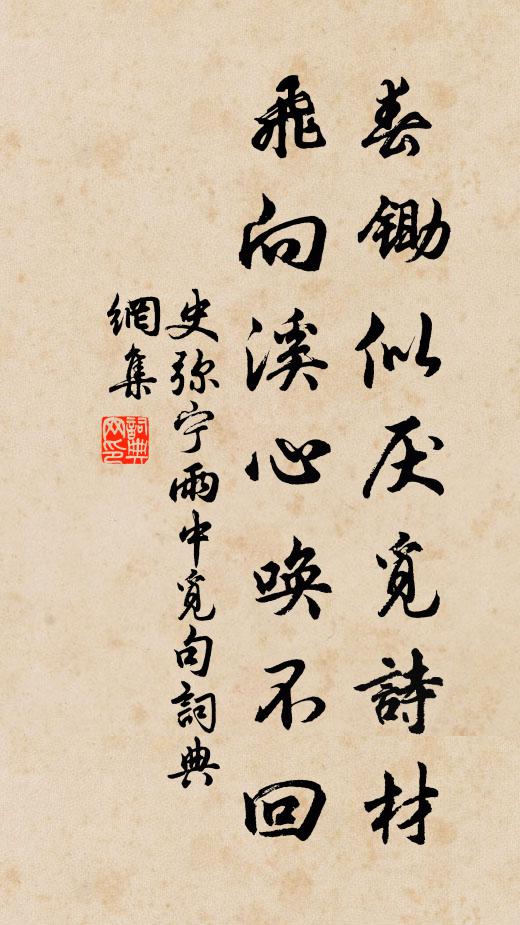 舂鋤似厌覓詩材
飛向溪心喚不回
史弥宁雨中覓句詞典
網集
詞典
网印